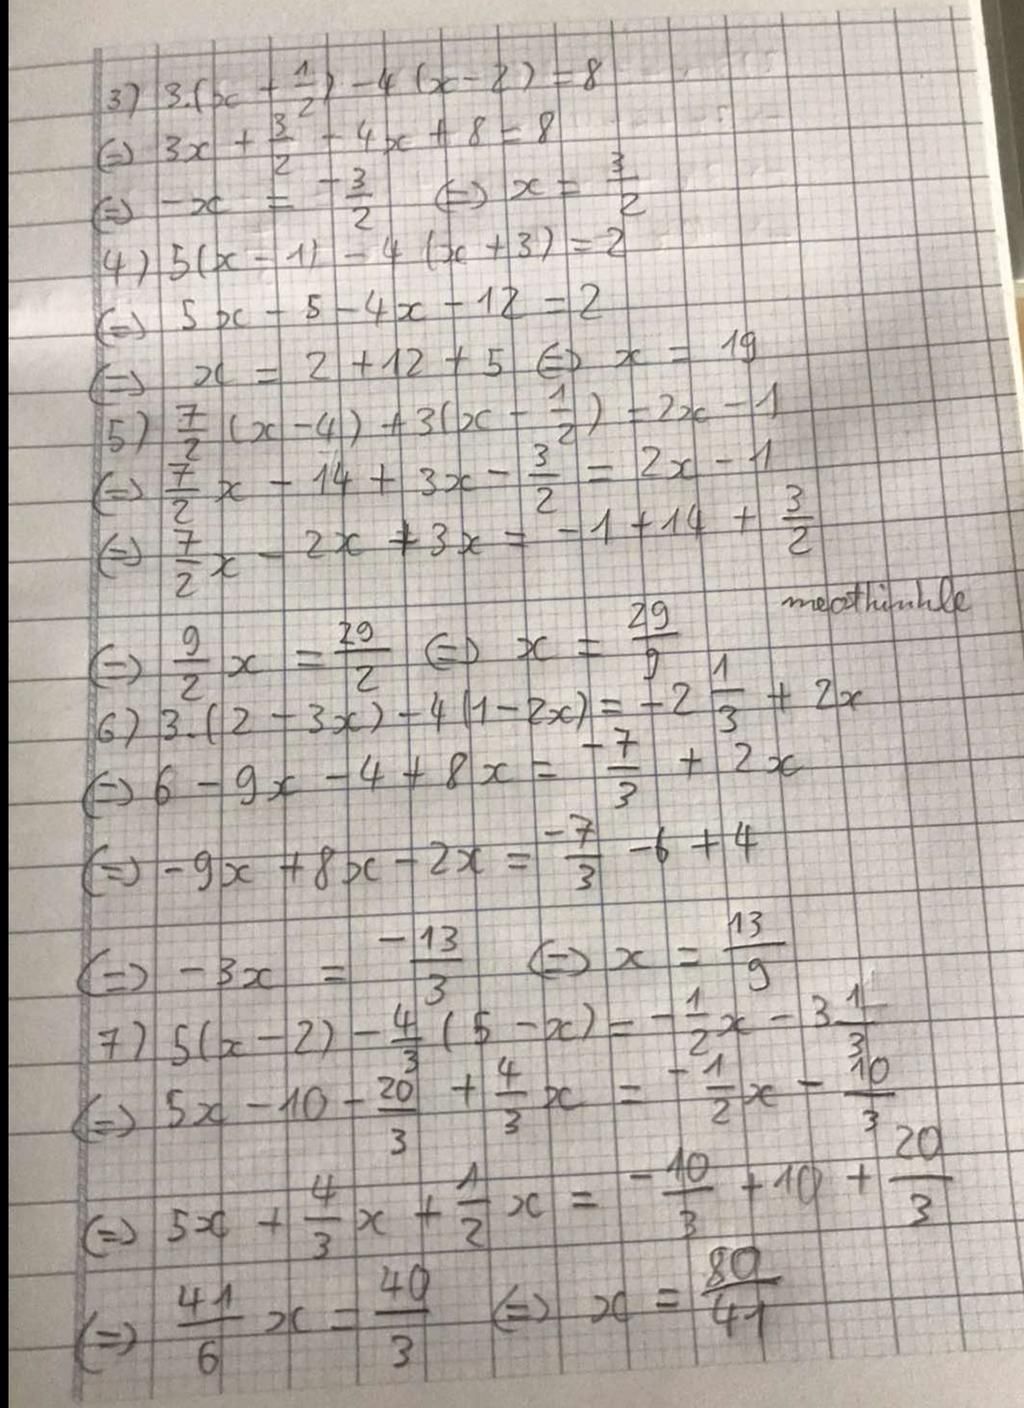 3) 3.(x + 1/2) - 4 (x - 2) = 8
(=) 3x + 3/2 - 4x + 8 = 8
(=) -x = -3/2 (=) x = 3/2
4) 5(x - 1) - 4 (x + 3) = 2
(=) 5x - 5 - 4x - 12 = 2
(=) x = 2 + 12 + 5 (=) x = 19
5) 7/2 (x - 4) + 3(x - 1/2) = 2x - 1
(=) 7/2 x - 14 + 3x - 3/2 = 2x - 1
(=) 7/2 x - 2x + 3x = -1 + 14 + 3/2
(=) 9/2 x = 29/2 (=) x = 29/9
6) 3.(2 - 3x) - 4(1 - 2x) = -2 1/3 + 2x
(=) 6 - 9x - 4 + 8x = -7/3 + 2x
(=) -9x + 8x - 2x = -7/3 - 6 + 4
(=) -3x = -13/3 (=) x = 13/9
7) 5(x - 2) - 4/3 (5 - x) = -1/2 x - 3 1/3
(=) 5x - 10 - 20/3 + 4/3 x = -1/2 x - 10/3
(=) 5x + 4/3 x + 1/2 x = -10/3 + 10 + 20/3
(=) 41/6 x = 40/3 (=) x = 80/41